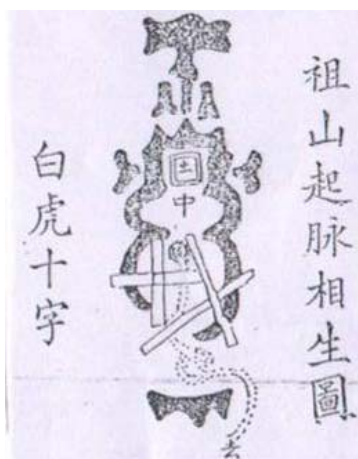 祖山起脉相生圖
土
中
白虎十字
去